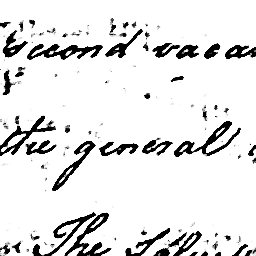 second vaca
the general
The